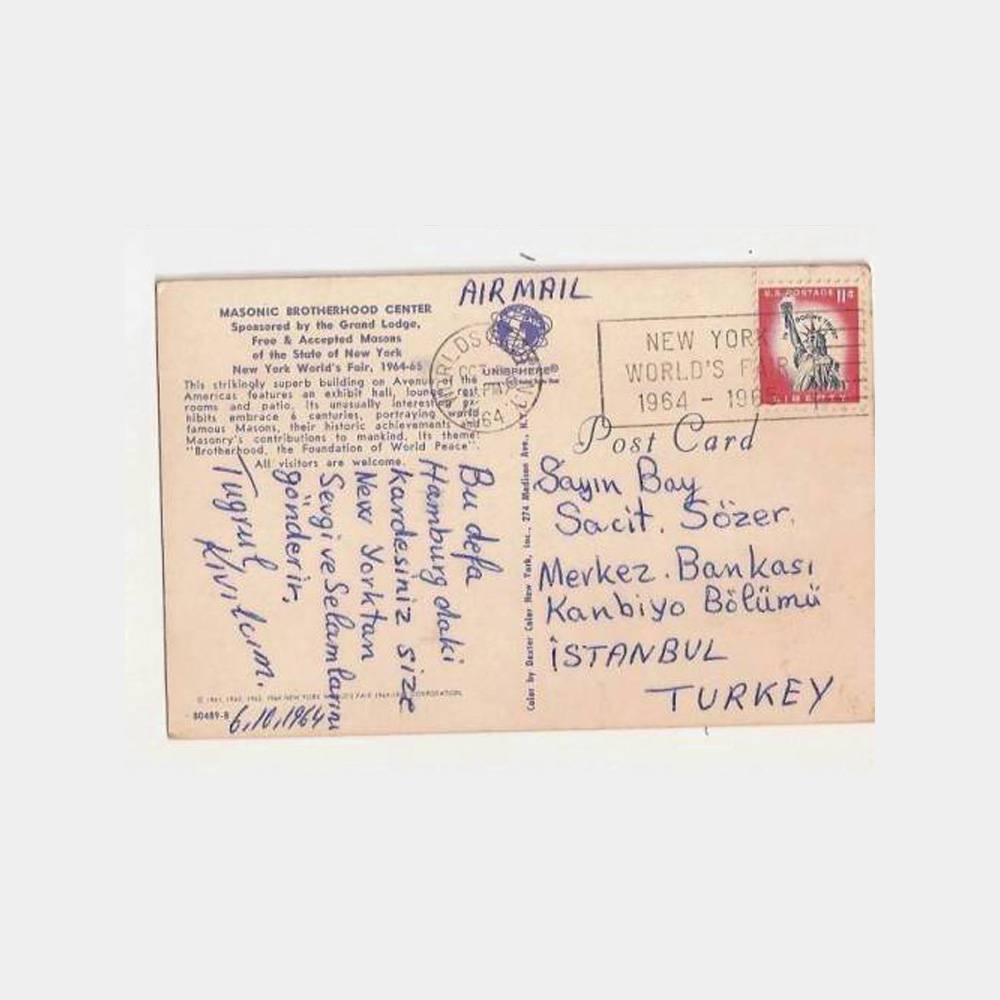 AIR MAIL
MASONIC BROTHERHOOD CENTER
Sponsored by the Grand Lodge,
Free & Accepted Masons
of the State of New York
New York World's Fair, 1964-65
This strikingly superb building on Avenue of the
Americas features an exhibit hall, lounge, rest
rooms and patio. Its unusually interesting ex-
hibits embrace 6 centuries, portraying world
famous Masons, their historic achievements and
Masonry's contributions to mankind. Its theme:
"Brotherhood, the Foundation of World Peace".
All visitors are welcome.
Bu defa
Hamburg daki
kardesiniz size
New Yorktan
Sevgi ve Selamlarını
gönderir,
Tuğrul
Kıvılcım.
6.10.1964
© 1961, 1962, 1963, 1964 NEW YORK WORLD'S FAIR 1964-1965 CORPORATION
80489-B
UNISPHERE®
WORLDS
OCT
PM
64
N.Y.
Color by Dexter Color New York, Inc., 274 Madison Ave., N.Y.
NEW YORK
WORLD'S FAIR
1964 - 196
U.S. POSTAGE 11¢
IN GOD WE TRUST
LIBERTY
Post Card
Sayın Bay
Sacit. Sözer.
Merkez. Bankası
Kanbiyo Bölümü
İSTANBUL
TURKEY